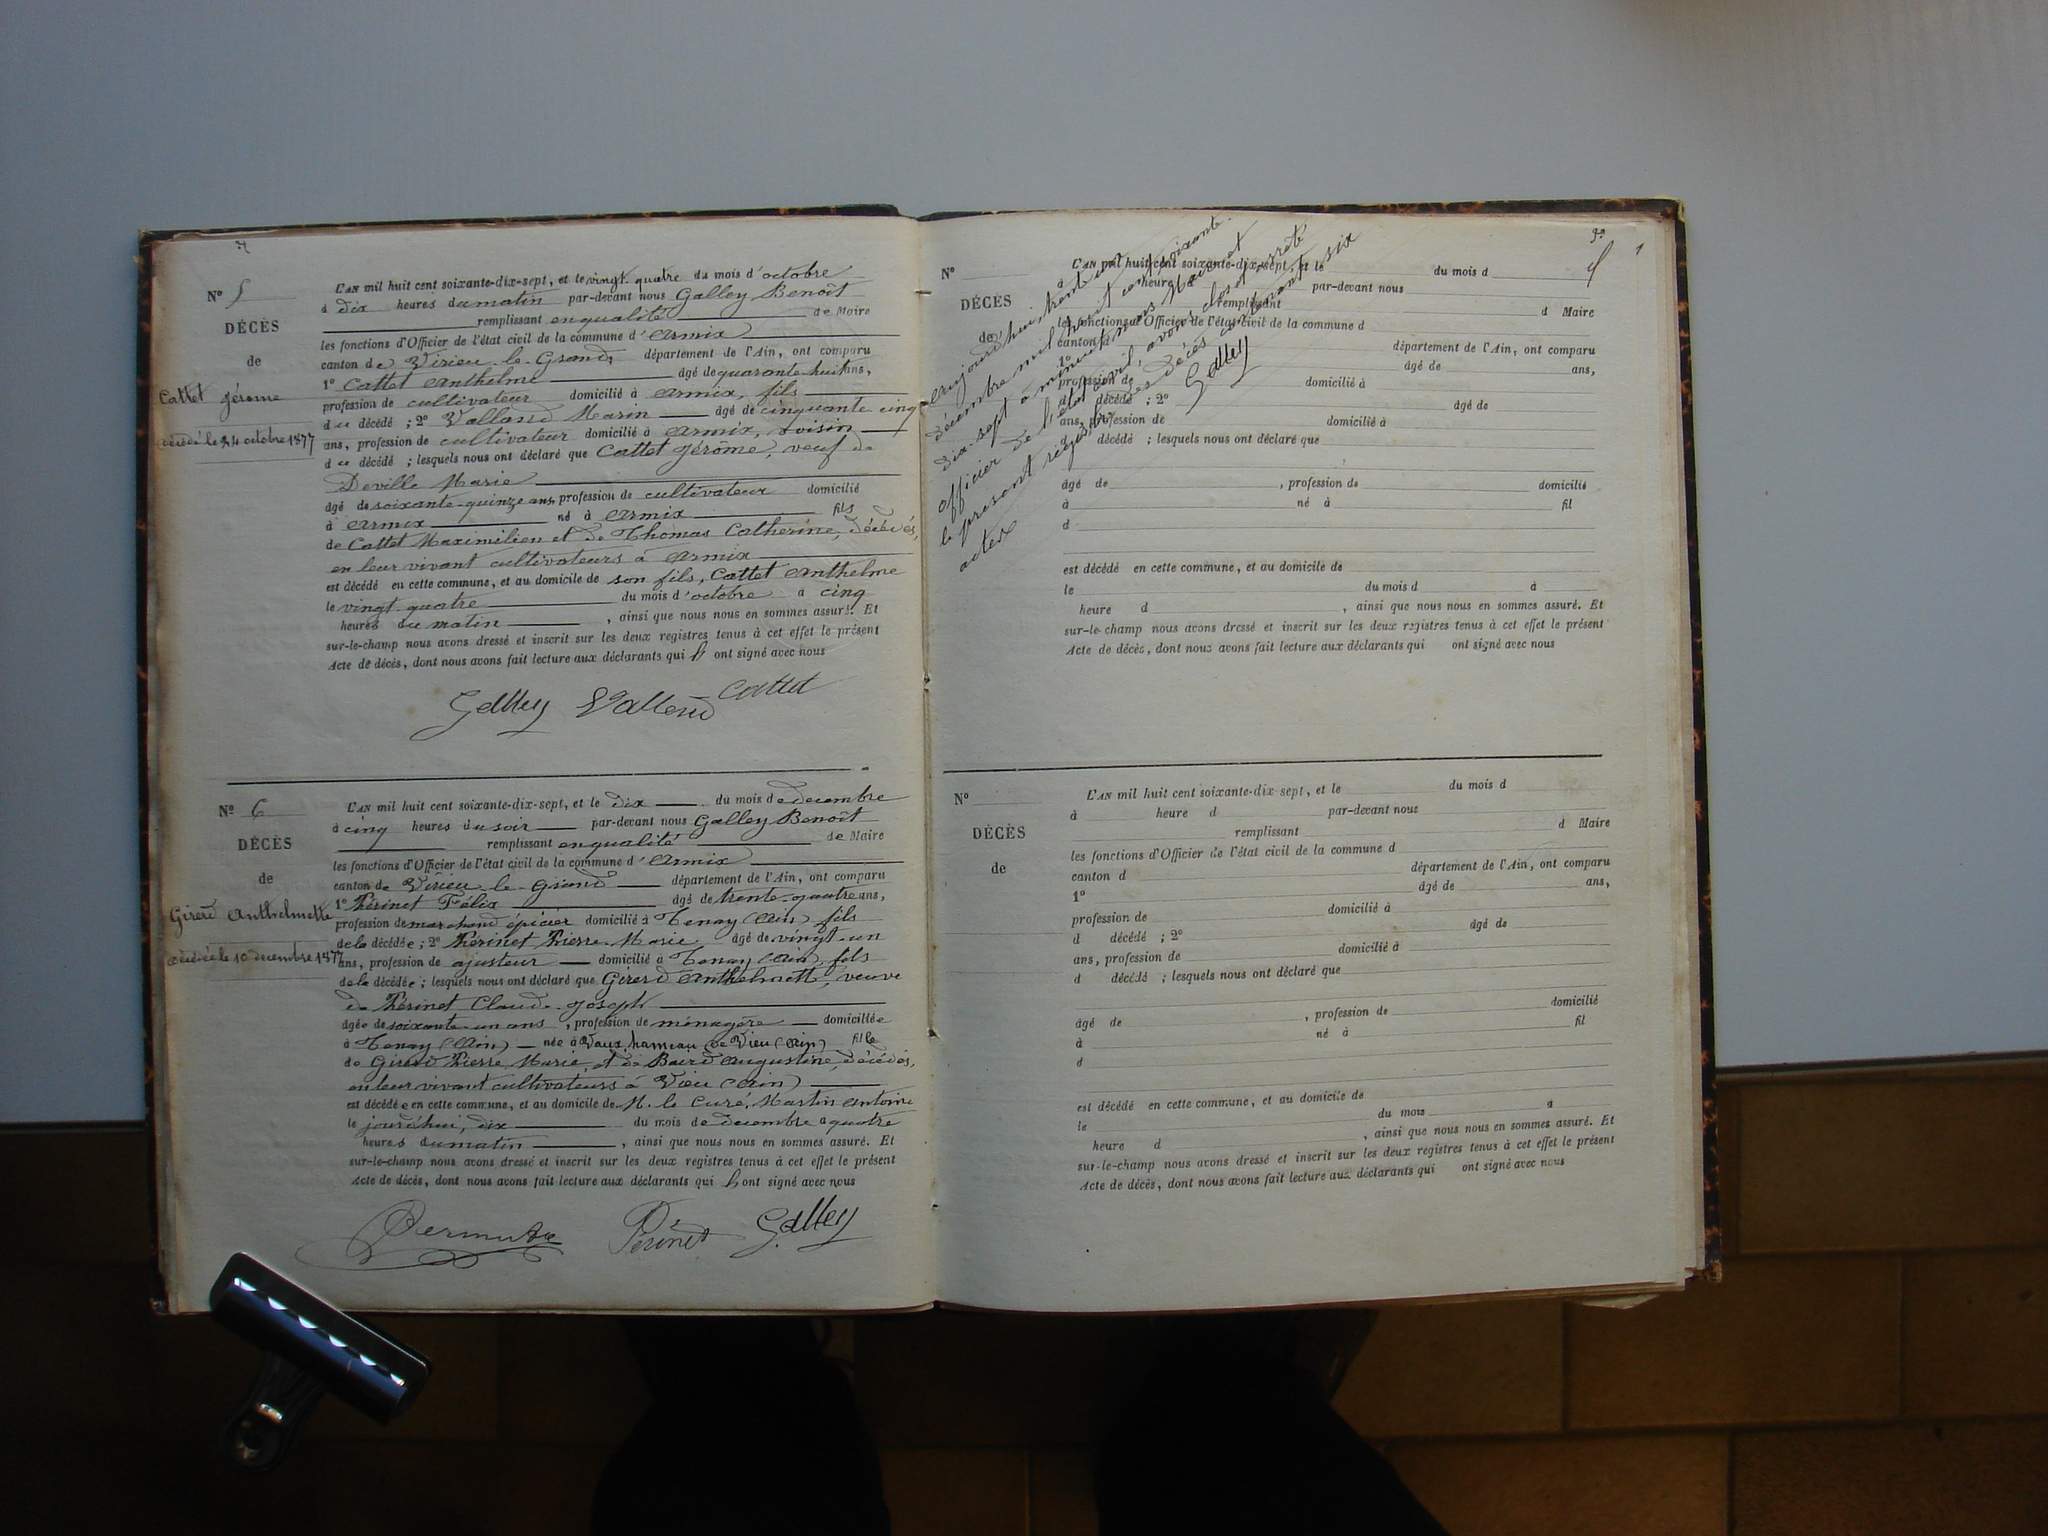 Nº 5
DÉCÈS
de
Cattet Jérome
décédé le 24 octobre 1877
L'AN mil huit cent soixante-dix-sept, et le vingt-quatre du mois d'octobre
à dix heures du matin par-devant nous Galley Benoît
remplissant en qualité de Maire
les fonctions d'Officier de l'état civil de la commune d'Armix
canton de Virieu-le-Grand, département de l'Ain, ont comparu
1º Cattet Anthelme âgé de quarante-huit ans,
profession de cultivateur domicilié à Armix, fils
du décédé ; 2º Valland Marin âgé de cinquante cinq
ans, profession de cultivateur domicilié à Armix, voisin
du décédé ; lesquels nous ont déclaré que Cattet Jérôme, veuf de
Deville Marie
âgé de soixante-quinze ans, profession de cultivateur domicilié
à Armix né à Armix fils
de Cattet Maximilien et de Thomas Catherine, décédés,
en leur vivant cultivateurs à Armix
est décédé en cette commune, et au domicile de son fils, Cattet Anthelme
le vingt-quatre du mois d'octobre à cinq
heures du matin , ainsi que nous nous en sommes assuré. Et
sur-le-champ nous avons dressé et inscrit sur les deux registres tenus à cet effet le présent
Acte de décès, dont nous avons fait lecture aux déclarants qui ont signé avec nous
Galley Valland Cattet
Nº 6
DÉCÈS
de
Girerd Anthelmette
décédée le 10 décembre 1877
L'AN mil huit cent soixante-dix-sept, et le dix du mois de décembre
à cinq heures du soir par-devant nous Galley Benoît
remplissant en qualité de Maire
les fonctions d'Officier de l'état civil de la commune d'Armix
canton de Virieu-le-Grand département de l'Ain, ont comparu
1º Périnet Félix âgé de trente-quatre ans,
profession de marchand épicier domicilié à Tenay (Ain), fils
de la décédée ; 2º Périnet Pierre-Marie âgé de vingt-un
ans, profession de ajusteur domicilié à Tenay (Ain), fils
de la décédée ; lesquels nous ont déclaré que Girerd Anthelmette, veuve
de Périnet Claude-Joseph
âgée de soixante-un ans , profession de ménagère domiciliée
à Tenay (Ain) née à Vaux, hameau de Vieu (Ain) fille
de Girerd Pierre Marie, et de Augustine, décédés,
en leur vivant cultivateurs à Vieu (Ain)
est décédée en cette commune, et au domicile de M. le Curé, Martin Antoine
le jourd'hui, dix du mois de décembre à quatre
heures du matin , ainsi que nous nous en sommes assuré. Et
sur-le-champ nous avons dressé et inscrit sur les deux registres tenus à cet effet le présent
Acte de décès, dont nous avons fait lecture aux déclarants qui ont signé avec nous
Périnet Galley
Nº
DÉCÈS
de
L'AN mil huit cent soixante-dix-sept, et le du mois d
à heure d par-devant nous
remplissant d Maire
les fonctions d'Officier de l'état civil de la commune d
canton d département de l'Ain, ont comparu
1º âgé de ans,
profession de domicilié à
d décédé ; 2º âgé de
ans, profession de domicilié à
d décédé ; lesquels nous ont déclaré que
âgé de , profession de domicilié
à né à fil
d
est décédé en cette commune, et au domicile de
le du mois d à
heure d , ainsi que nous nous en sommes assuré. Et
sur-le-champ nous avons dressé et inscrit sur les deux registres tenus à cet effet le présent
Acte de décès, dont nous avons fait lecture aux déclarants qui ont signé avec nous
aujourd'hui, trente un
décembre mil huit cent soixante
dix-sept à minuit nous Maire et
officier de l'état civil, avons clos et arrêté
le présent registre des décès contenant six
actes
Galley
Nº
DÉCÈS
de
L'AN mil huit cent soixante-dix-sept, et le du mois d
à heure d par-devant nous
remplissant d Maire
les fonctions d'Officier de l'état civil de la commune d
canton d département de l'Ain, ont comparu
1º âgé de ans,
profession de domicilié à
d décédé ; 2º âgé de
ans, profession de domicilié à
d décédé ; lesquels nous ont déclaré que
âgé de , profession de domicilié
à né à fil
d
est décédé en cette commune, et au domicile de
le du mois à
heure d , ainsi que nous nous en sommes assuré. Et
sur-le-champ nous avons dressé et inscrit sur les deux registres tenus à cet effet le présent
Acte de décès, dont nous avons fait lecture aux déclarants qui ont signé avec nous